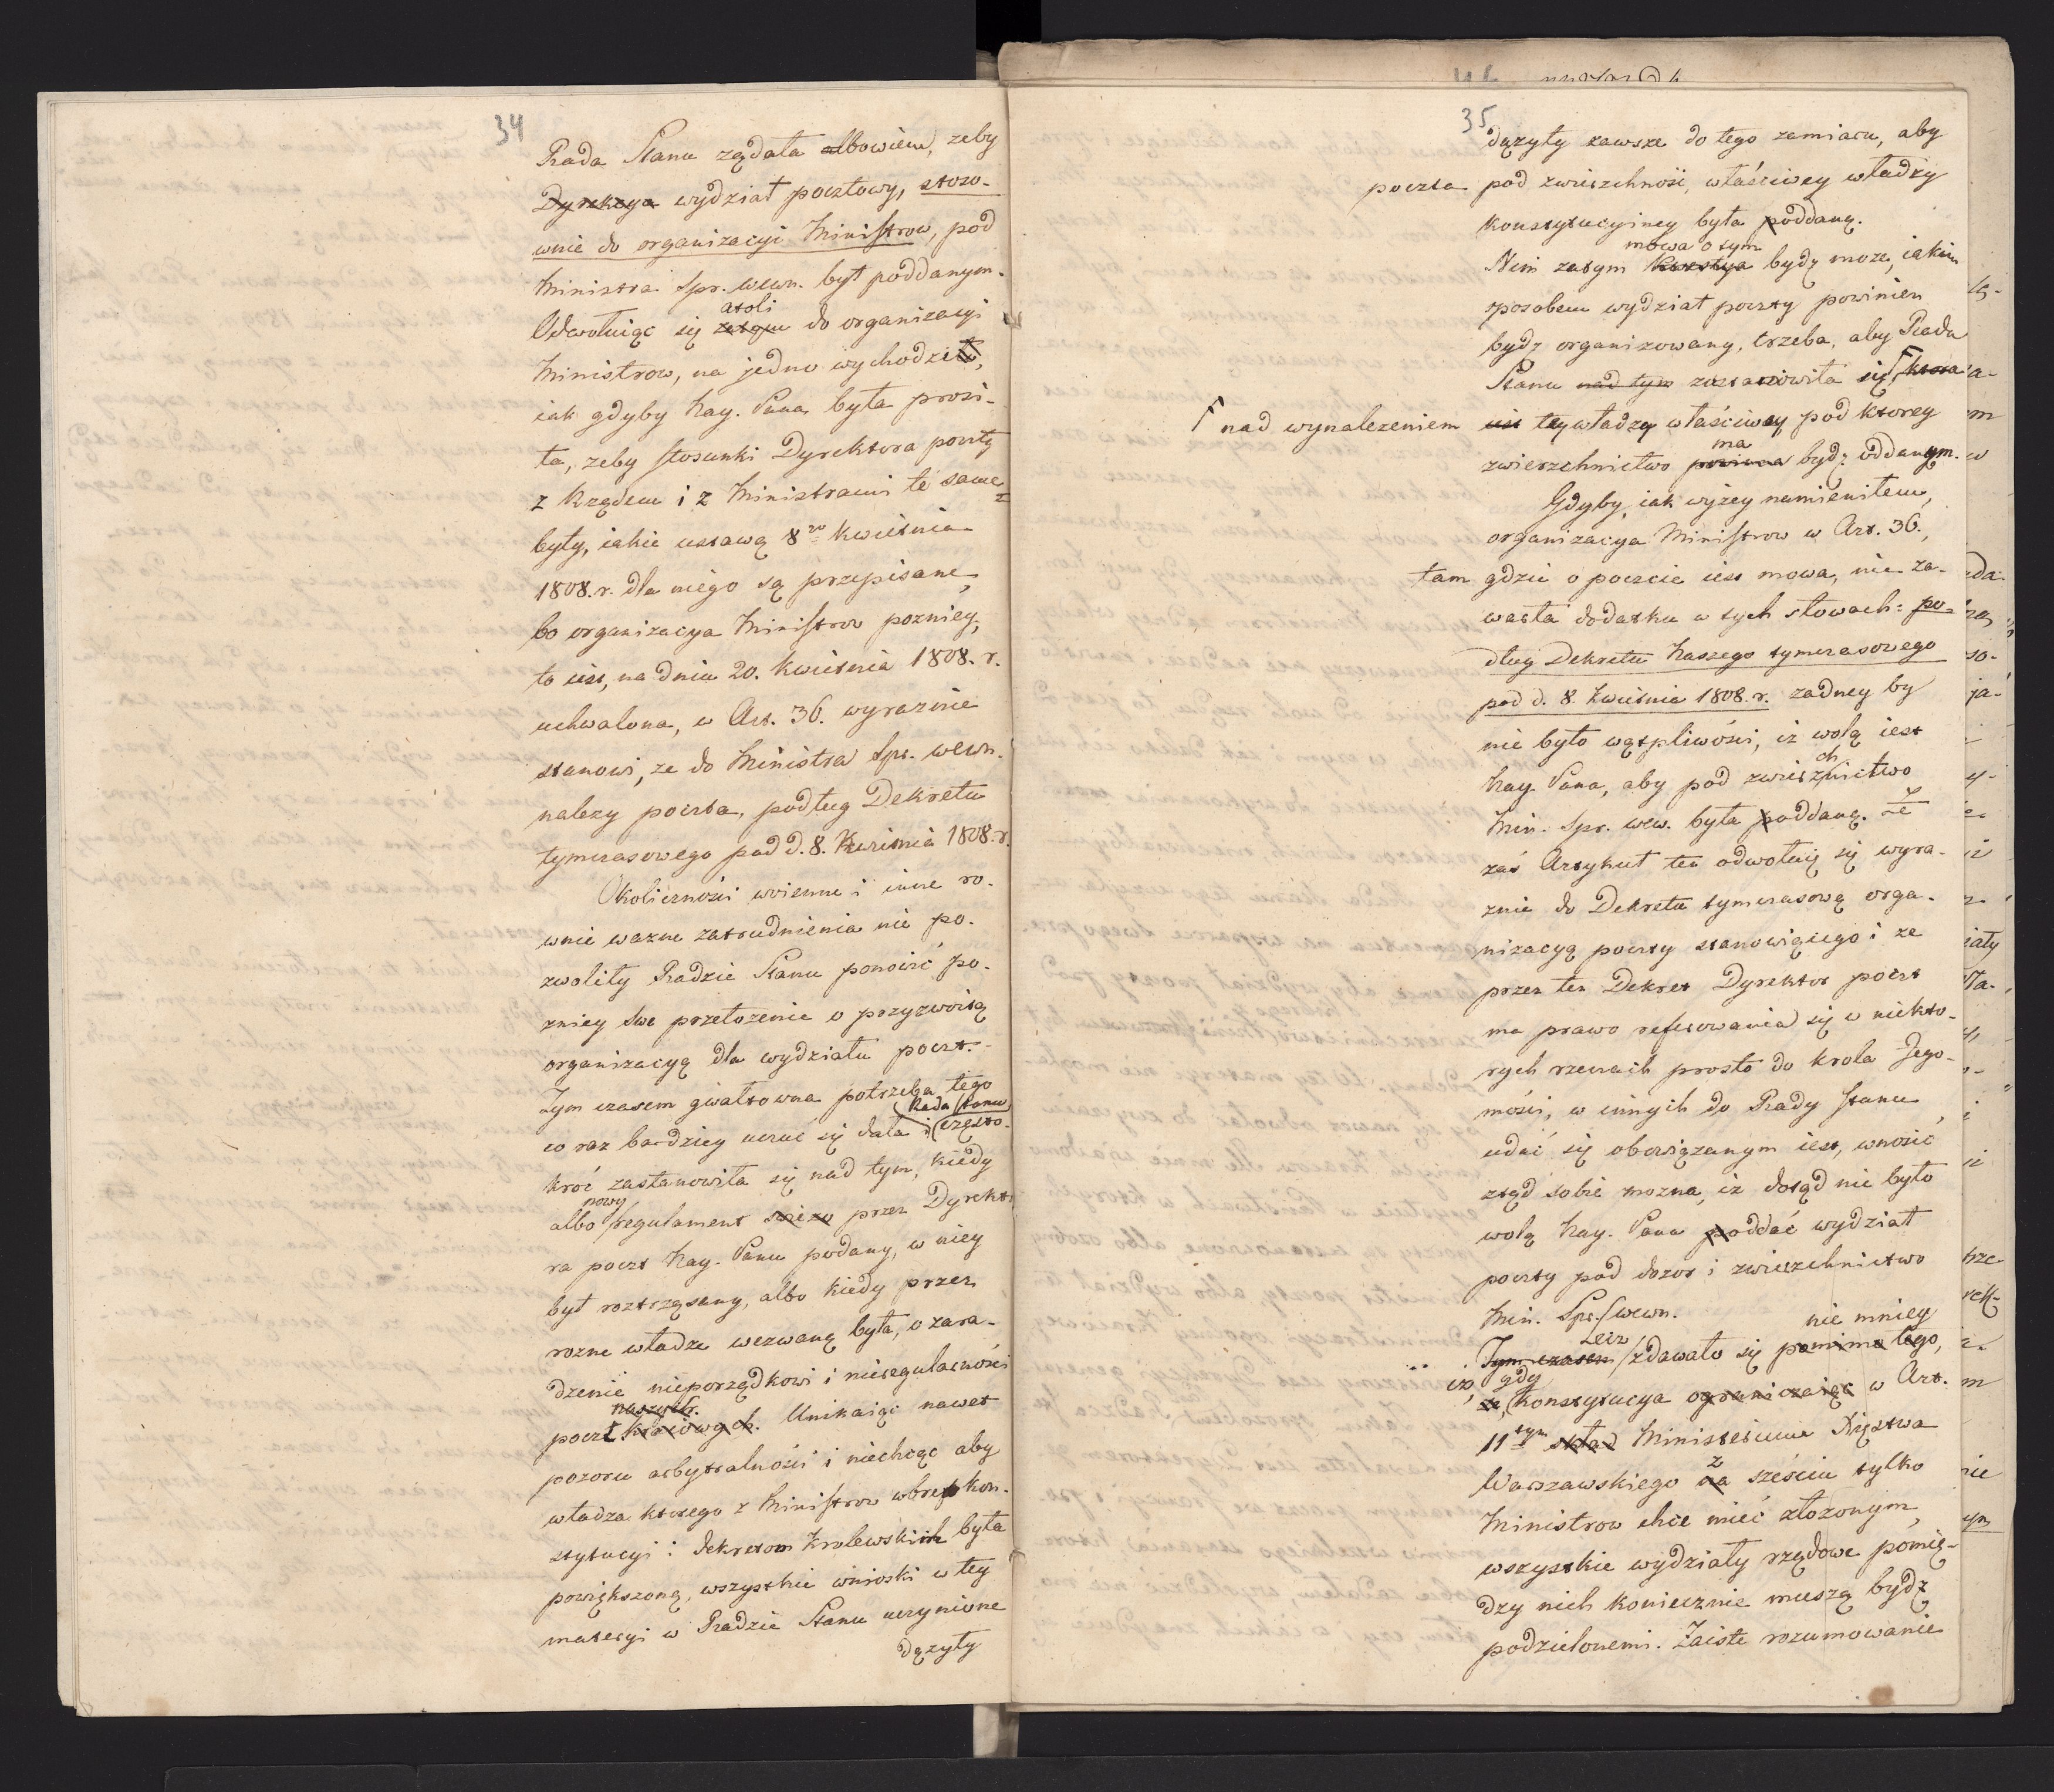 34
Rada Stanu ządała albowiem, zeby
Dyrekcya wydział pocztowy, stoso-
wnie do organizacyi Ministrow, pod
Ministra Spr. wewn. był poddanym.
atoli
Odwołuiąc się zatym do organizacyi
Ministrow, na jedno wychodziło,
iak gdyby Nay. Pana była prosi-
ła, zeby stosunki Dyrektora poczty
z Rządem i z Ministrami te same
były, iakie ustawą 8go Kwietnia
1808. r. dla niego są przepisane,
bo organizacya Ministrow pozniey,
to iest, na dniu 20. Kwietnia 1808. r.
uchwalona, w Art. 36. wyraznie
stanowi, ze do Ministra Spr. wewn.
nalezy poczta, podług Dekretu
tymczasowego pod d. 8. Kwietnia 1808. r.
Okolicznosci woienne i inne ro-
wnie wazne zatrudnienia nie po-
zwoliły Radzie Stanu ponowić po-
zniey swe przełozenie o przyzwoitą
organizacyą dla wydziału poczt.
Tym czasem gwałtowna potrzeba tego
Rada Stanu
co raz bardziey uczuć się dała i często-
kroć zastanowiła się nad tym, kiedy
nowy
albo regulament swiezo przez Dyrekto
ra poczt Nay. Panu podany, w niey
był roztrząsany, albo kiedy przez
rozne władze wezwaną była, o zara-
dzenie nieporządkowi i nieregularnosci
naszych.
poczt kraiowych. Unikaiąc nawet
pozoru arbytralnosci i niechcąc aby
władza ktorego z Ministrow wbrew kon-
stytucyi i dekretom Krolewskim była
powiększoną, wszystkie wnioski w tey
materyi w Radzie Stanu uczynione
dązyły
35
dązyły zawsze do tego zamiaru, aby
poczta pod zwierzchność, właściwey władzy
konstytucyiney była poddaną.
mowa o tym
Nim zatym kwestya bydź moze, iakim
sposobem wydział poczty powinien
bydź organizowany, trzeba, aby Rada
Stanu nad tym zastanowiła się, ktora
nad wynalezieniem iest tey władzy właściwey, pod ktorey
ma
zwierzchnictwo powinna bydź oddanym.
Gdyby, iak wyzey namieniłem,
organizacya Ministrow w Art. 36.,
tam gdzie o poczcie iest mowa, nie za-
warła dodatku w tych słowach: po-
dług Dekretu Naszego tymczasowego
pod d. 8. Kwietnia 1808. r. zadney by
nie było wątpliwości, iz wolą iest
ch
Nay. Pana, aby pod zwierznictwo
Min. Spr. wew. była poddaną. Ze
zaś Artykuł ten odwołuię się wyra-
znie do Dekretu tymczasową orga-
nizacyą poczty stanowiącego i ze
przez ten Dekret Dyrektor poczt
ma prawo referowania się w niekto-
rych rzeczach prosto do Krola Jego-
mości, w innych do Rady Stanu
udać się obowiązanym iest, wnosić
ztąd sobie mozna, iz dotąd nie było
wolą Nay. Pana poddać wydział
poczty pod dozor i zwierzchnictwo
Min. Spr. wewn.
Lecz nie mniey
Tymczasem zdawało się pomimo tego,
iz, gdy
ze, Konstytucya ograniczaiąc w Art.
11tym skład Ministerium Xięstwa
z
Warszawskiego na sześciu tylko
Ministrow chce mieć złozonym,
wszystkie wydziały rządowe pomię-
dzy nich koniecznie muszą bydź
podzielonemi. Zaiste rozumowanie